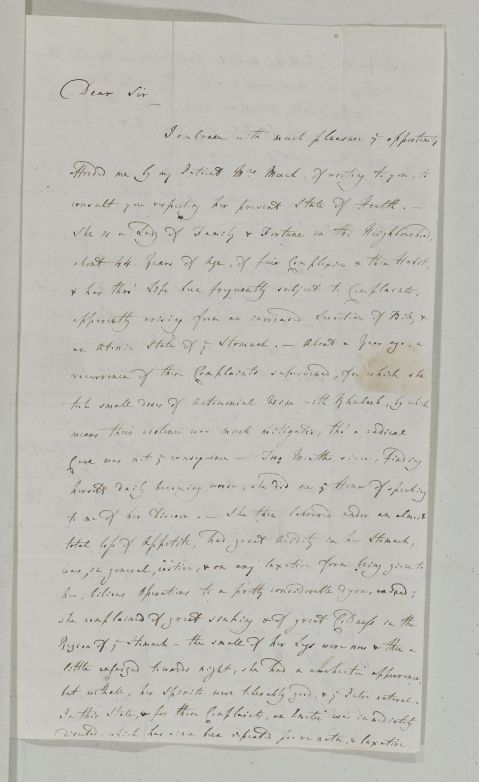 Dear Sir
I embrace with much pleasure ye opportunity
afforded me by my Patient Mrs , of writing to you, to
consult you respecting her present State of Health. —
She is a Lady of Family & Fortune in this Neighbourhood,
about 44 Years of Age, of fair Complexion & thin Habit,
& has thro' Life been frequently subject to Complaints,
apparently arising from an increased Secretion of Bile, &
an Atonic State of ye Stomach. — About a Year ago, a
recurrence of these Complaints supervened, for which she
took small doses of Antimonial Wine with Rhubarb, by which
means their violence was much mitigated, tho' a radical
Cure was not ye consequence — Two Months since, finding
herself daily becoming worse, she did me ye Honor of speaking
to me of her Disease. — She then laboured under an almost
total loss of Appetite, had great Acidity in her Stomach,
was, in general, costive, & on any laxative form being given to
her, bilious Operations to a pretty considerable degree, ensued;
she complained of great sinking & of great Coldness in the
Region of ye Stomach — the small of her Legs were now & then a
little enlarged towards night, she had a cachectic appearance,
but withall, her Spirits were tolerably good, & ye Pulse natural.
In this State, & for these Complaints, an Emetic was immediately
directed, which has since been repeated pro re nata, & laxative